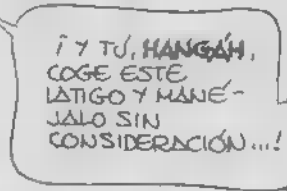 ¡Y TÚ, HANGÁH,
COGE ESTE
LATIGO Y MANÉ-
JALO SIN
CONSIDERACIÓN...!